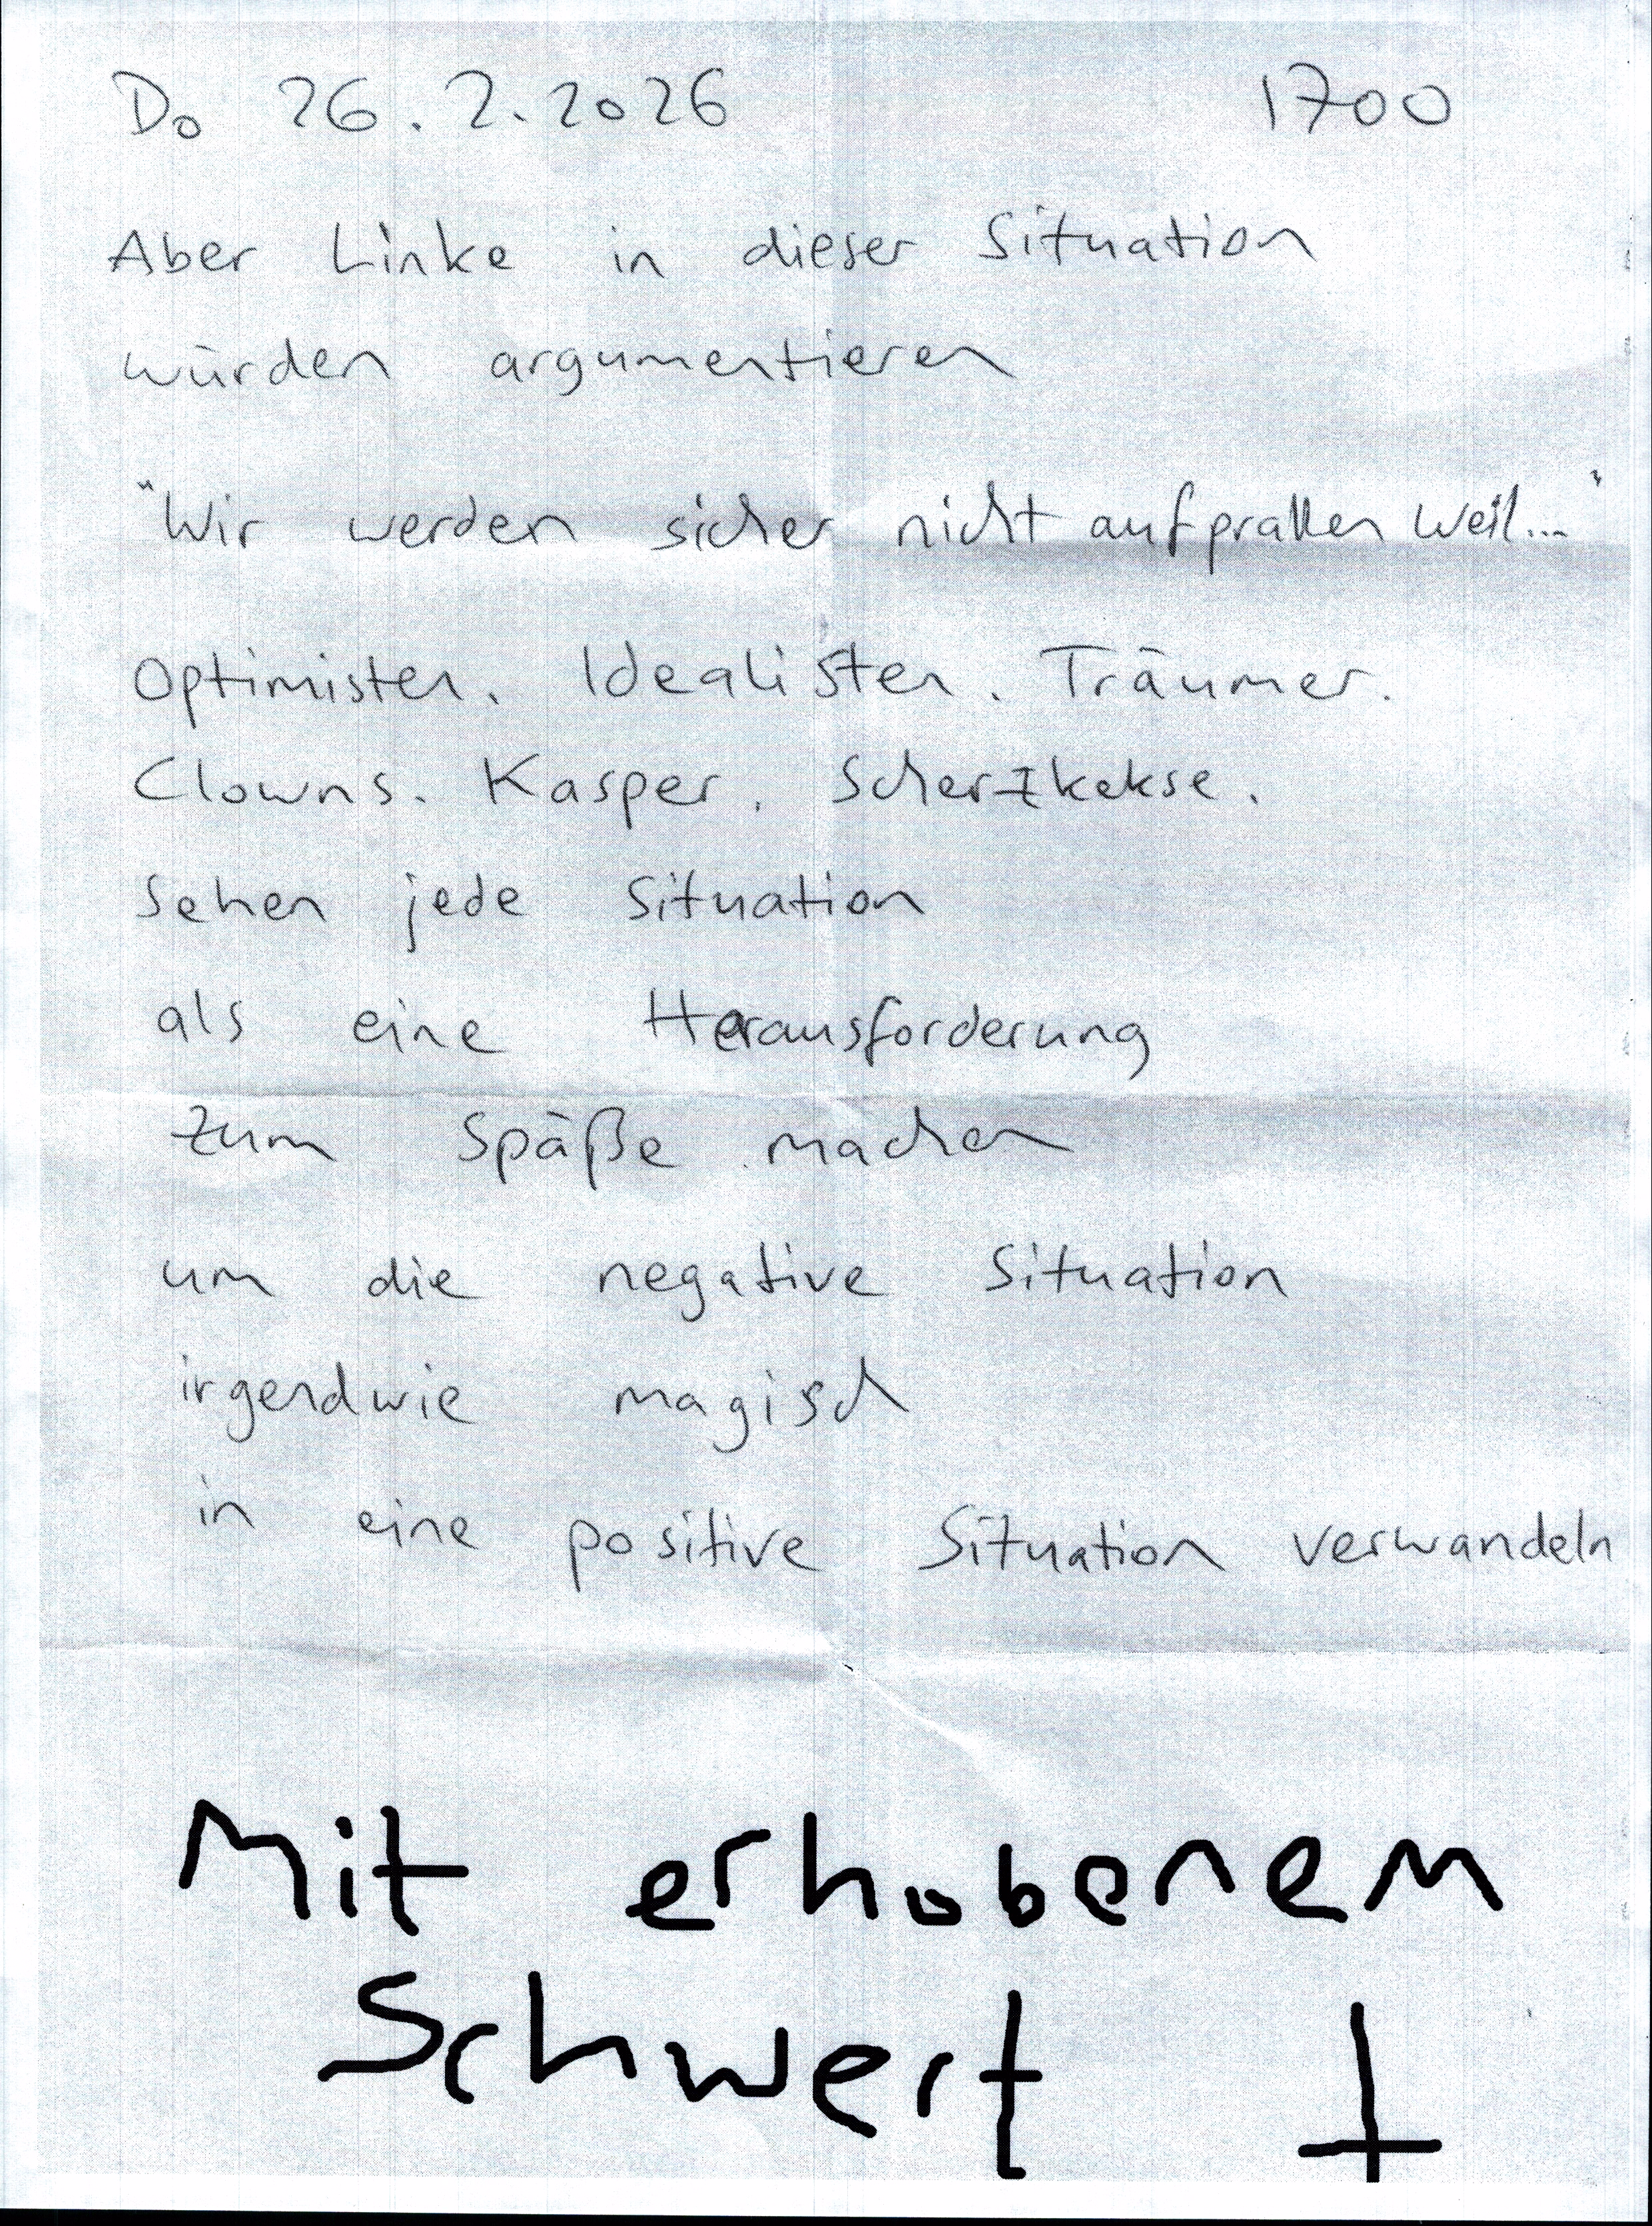 Do 26.2.2026 1700
Aber Linke in dieser Situation
würden argumentieren
"Wir werden sicher nicht aufprallen weil..."
Optimisten. Idealisten. Träumer.
Clowns. Kasper. Scherzkekse.
Sehen jede Situation
als eine Herausforderung
zum Späße machen
um die negative Situation
irgendwie magisch
in eine positive Situation verwandeln
Mit erhobenem
Schwert